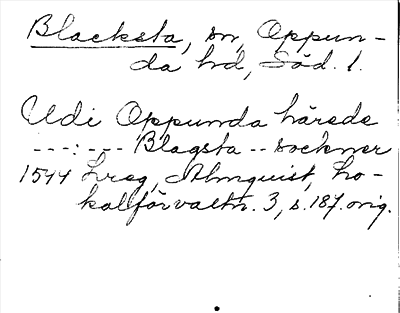 Blacksta, sn, Oppun-
da hd, Söd. l.
Udi Oppunda härede
---:--- Blagsta -- sockner
1544 Lreg, Almquist, Lo-
kalförvaltn. 3, s. 187. orig.